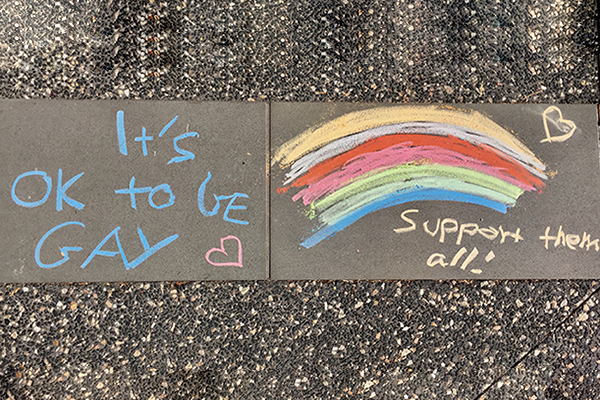 It's
OK to be
GAY
Support them
all!